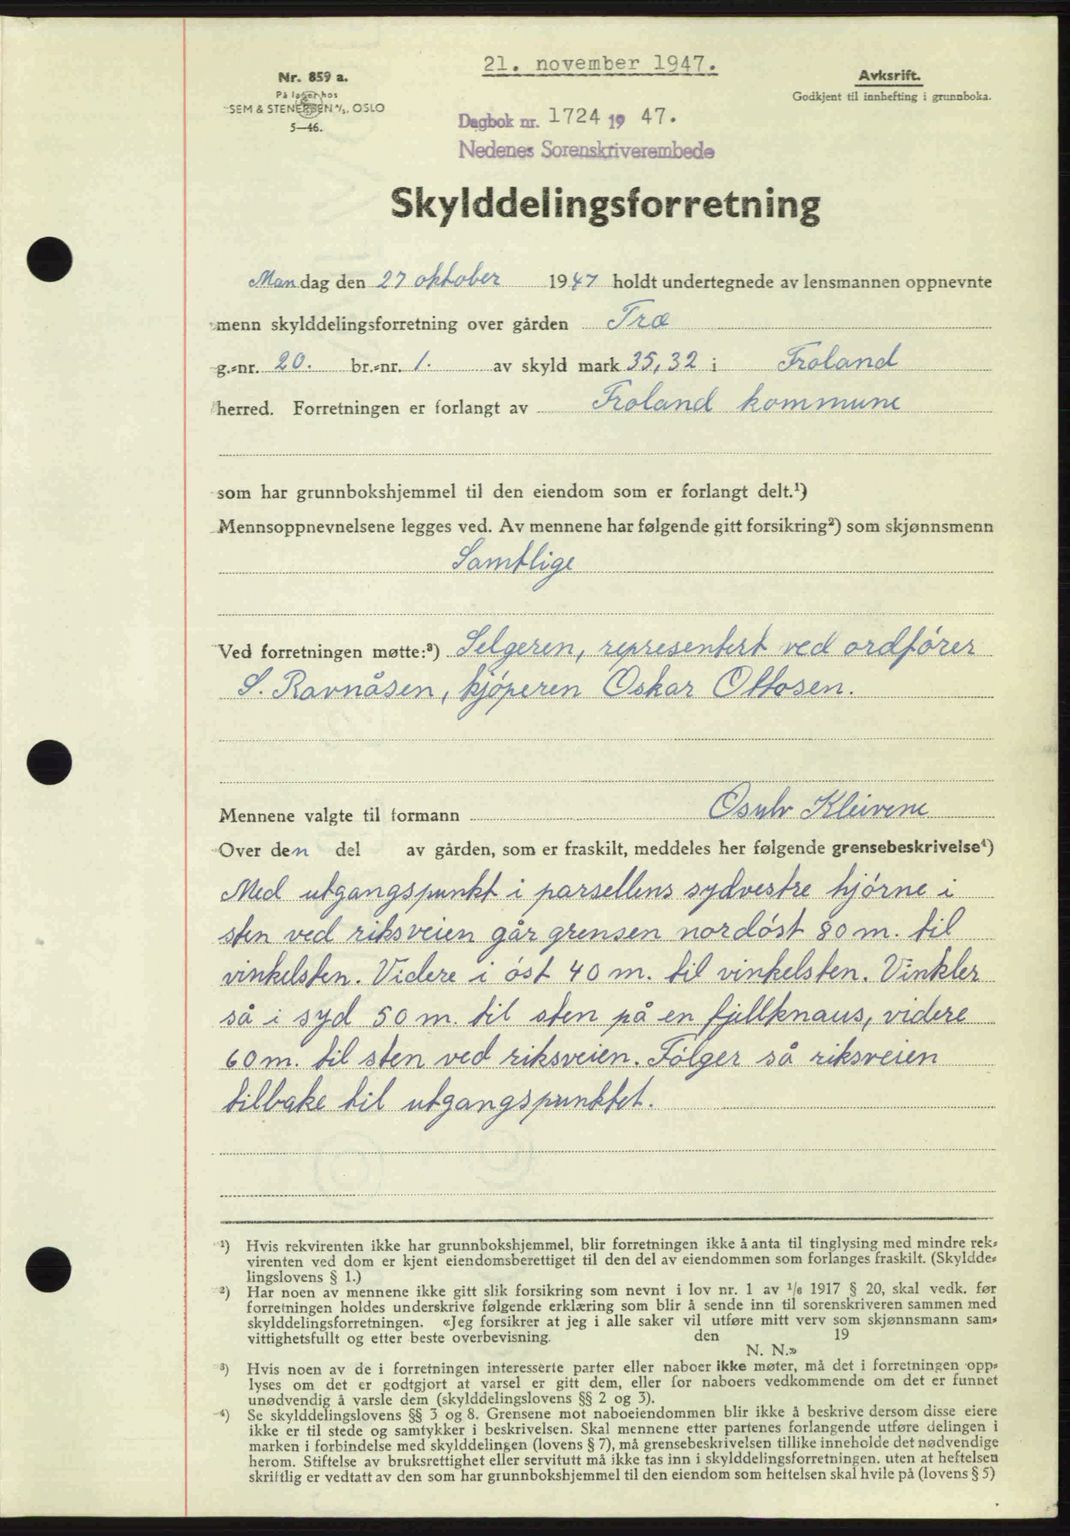 21. november 1947.
Nr. 859 a.
På lager hos
SEM & STENERSEN A/S, OSLO
5—46.
Avksrift.
Godkjent til innhefting i grunnboka.
Dagbok nr. 1724 19 47.
Nedenes Sorenskriverembede
Skylddelingsforretning
Mandag den 27 oktober 1947 holdt undertegnede av lensmannen oppnevnte
menn skylddelingsforretning over gården Træ
g.-nr. 20. br.-nr. 1. av skyld mark 35,32 i Froland
herred. Forretningen er forlangt av Froland kommune
som har grunnbokshjemmel til den eiendom som er forlangt delt.¹)
Mennsoppnevnelsene legges ved. Av mennene har følgende gitt forsikring²) som skjønnsmenn
Samtlige
Ved forretningen møtte:³) Selgeren, representert ved ordfører
S. Ravnåsen, kjøperen Oskar Ottosen.
Mennene valgte til formann Osulv Kleivene
Over den del av gården, som er fraskilt, meddeles her følgende grensebeskrivelse⁴)
Med utgangspunkt i parsellens sydvestre hjørne i
sten ved riksveien går grensen nordøst 80 m. til
vinkelsten. Videre i øst 40 m. til vinkelsten. Vinkler
så i syd 50 m. til sten på en fjellknaus, videre
60 m. til sten ved riksveien. Følger så riksveien
tilbake til utgangspunktet.
¹) Hvis rekvirenten ikke har grunnbokshjemmel, blir forretningen ikke å anta til tinglysing med mindre rek-
virenten ved dom er kjent eiendomsberettiget til den del av eiendommen som forlanges fraskilt. (Skyldde-
lingslovens § 1.)
²) Har noen av mennene ikke gitt slik forsikring som nevnt i lov nr. 1 av 1/6 1917 § 20, skal vedk. før
forretningen holdes underskrive følgende erklæring som blir å sende inn til sorenskriveren sammen med
skylddelingsforretningen. «Jeg forsikrer at jeg i alle saker vil utføre mitt verv som skjønnsmann sam-
vittighetsfullt og etter beste overbevisning. den 19
N. N.»
³) Hvis noen av de i forretningen interesserte parter eller naboer ikke møter, må det i forretningen opp-
lyses om det er godtgjort at varsel er gitt dem, eller for naboers vedkommende om det er funnet
unødvendig å varsle dem (skylddelingslovens §§ 2 og 3).
⁴) Se skylddelingslovens §§ 3 og 8. Grensene mot naboeiendommen blir ikke å beskrive dersom disse eiere
ikke er til stede og samtykker i beskrivelsen. Skal mennene etter partenes forlangende utføre delingen i
marken i forbindelse med skylddelingen (lovens § 7), må grensebeskrivelsen tillike inneholde det nødvendige
herom. Stiftelse av bruksrettighet eller servitutt må ikke tas inn i skylddelingsforretningen. uten at heftelsen
skriftlig er vedtatt av den som har grunnbokshjemmel til den eiendom som heftelsen skal hvile på (lovens § 5)